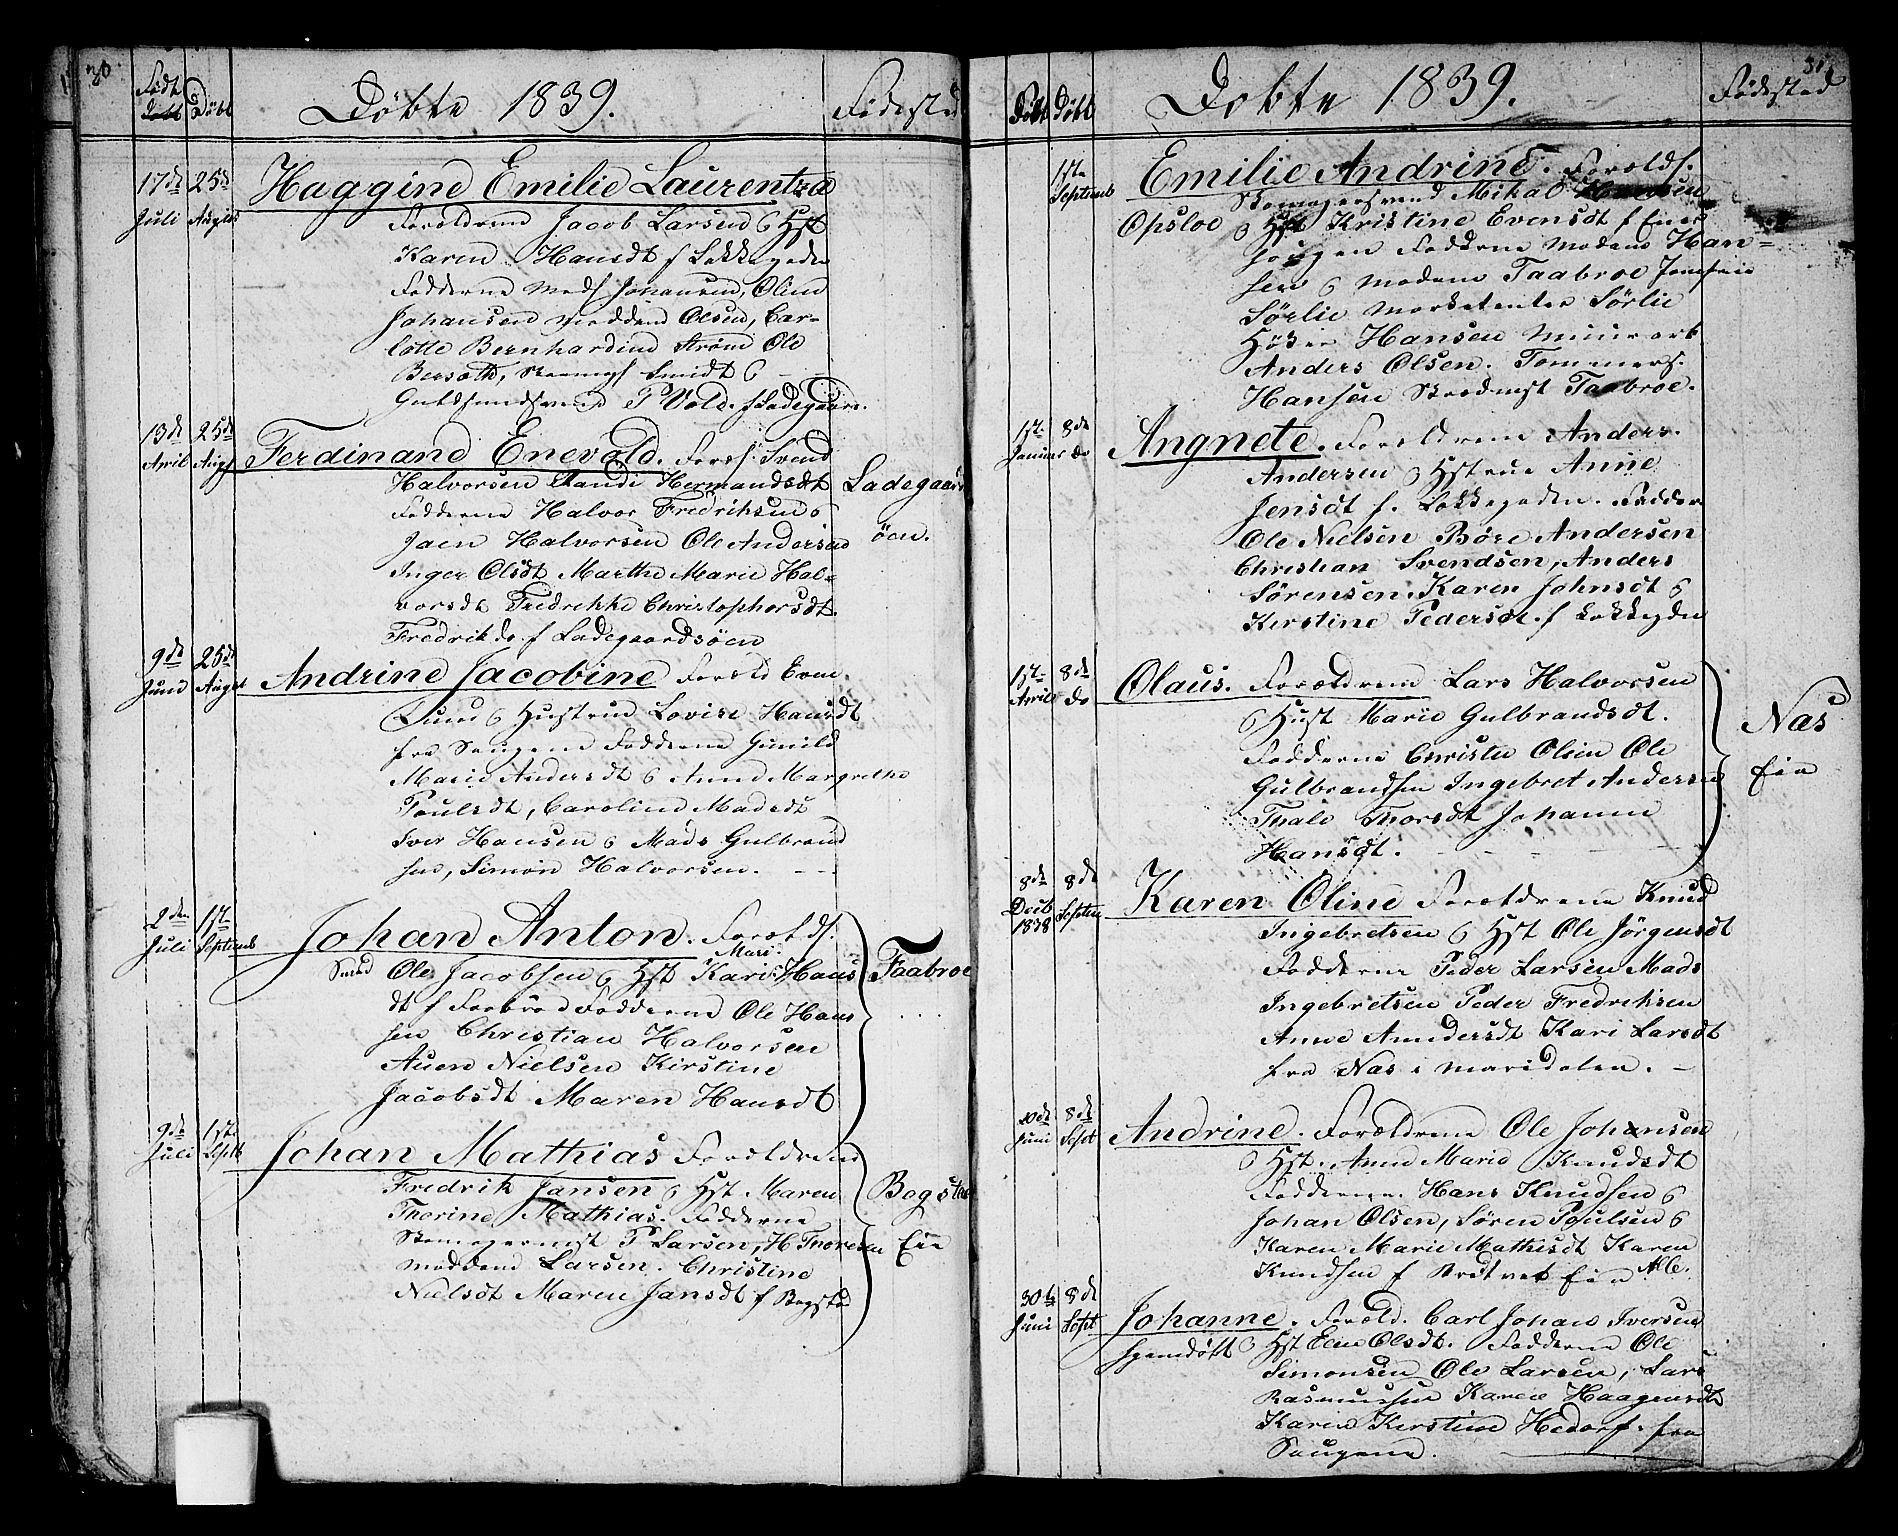 30
Født Døbt
Døbte 1839.
Fødested
17de Juli
25de August
Haggine Emilie Laurentza
Forældrene Jacob Larsen & Hst
Karen Hansdt f Løkkegaden
Fadderne Mads Johansen, Oline
Johansen Madden Olsen, Car-
lotte Bernhardine Strøm Ole
Bersæth, Smidt &
P Vold f Ladegaards.
13de April
25de Augst
Ferdinand Enevold. Foræ. Svend
Halvorsen Randi Hermandsdt
Fadderne Halvor Fredriksen &
Jaen Halvorsen Ole Andersen
Inger Olsdt Marthe Marie Hal-
vorsdt Fredrikke Christophersdt
Fredrik do f Ladegaardsøen
Ladegaards
öen.
9de Juni
25de August
Andrine Jacobine Foreld Even
Lund & Hustrue Lovise Hansdt
fra Saugene Fadderne Gunild
Marie Andersdt & Anne Margrethe
Poulsdt, Caroline Madsdt
Iver Hansen & Mads Gulbrand
sen, Simon Halvorsen.
2den Juli
1ste Septemb
Johan Anton. Forælds.
Mari
Smed Ole Jacobsen & Hst Kari Hans
dt f Faabroe Fadderne Ole Han
sen Christian Halvorsen
Auen Nielsen Kirstine
Jacobsdt Maren Hansdt
Faabroe
9de Juli
1ste Septb
Johan Mathias Forældrene
Fredrik Jansen & Hst Maren
Thorine Mathias. Fadderne
Skomagermst P Larsen, H Thoresen
Maddend Larsen. Christine
Nielsdt Maren Jansdt f Bogstad
Bogstad
Eie
31
Født Døbt
Døbte 1839.
Fødested
1ste Septemb
Emilie Andrine. Forælds.
Skomagersvend Mikal Hansen
Opsloe & Hst Kristine Evensdt f Ener
haugen Fadderne Madam Han=
sen & Madam Taabroe Jomfrue
Sørlie Marketenter Sørlie
Høker Hansen Muurarb
Anders Olsen. Tømmers.
Hansen Skredmst Taabroe.
1ste Januar
8de do
Angnete. Forældrene Anders.
Andersen & Hstrue Anne
Jensdt f. Løkkegaden. Fadder
Ole Nielsen Børe Andersen
Christian Svendsen, Anders
Sørensen. Karen Johnsdt &
Kirstine Pedersdt. f Løkkegden
1ste April
8de do
Olaus. Forældrene Lars Halvorsen
& Hust Marie Gulbrandsdt.
Fadderne Christen Olsen Ole
Gulbrandsen Ingebret Andersen
Thale Thorsdt Johanne
Hansdt.
Nas
Eie
8de Decb 1838
8de Septem
Karen Oline Forældrene Knud
Ingebretsen & Hst Ole Jørgensdt
Fadderne Peder Larsen Mads
Ingebretsen Peder Fredriksen
Anne Amdersdt Kari Larsdt
fra Nas i Maridalen.
20de Juni
8de Sept
Andrine. Forældrene Ole Johansen
& Hst. Anne Marie Knudsdt
Fadderne. Hans Knudsen &
Johan Olsen, Søren Poulsen &
Karen Marie Mathisdt Karen
Knudsen f Bredtvet Eie
30te Juni
8de Sept
Johanne. Foræld. Carl Johan Iversen
& Hst Elen Olsdt. Fadderne Ole
Simonsen Ole Larsen, Lars
Rasmussen Karen Haagensdt
Karen Kirstine Hedorf. fra
Saugene.